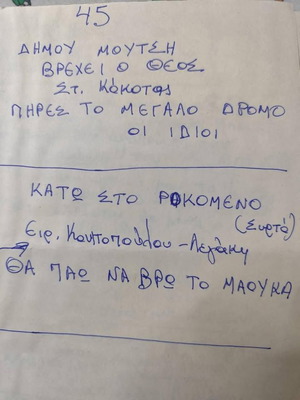 45
ΔΗΜΟΥ ΜΟΥΤΣΗ
ΒΡΕΧΕΙ Ο ΘΕΟΣ
Στ. Κόκοτας
ΠΗΡΕΣ ΤΟ ΜΕΓΑΛΟ ΔΡΟΜΟ
ΟΙ ΙΔΙΟΙ
ΚΑΤΩ ΣΤΟ ΡΟΚΟΜΕΝΟ
(Συρτό)
Ειρ. Κοντοπούλου - Λεγάκη
ΘΑ ΠΑΩ ΝΑ ΒΡΩ ΤΟ ΜΑΟΥΚΑ